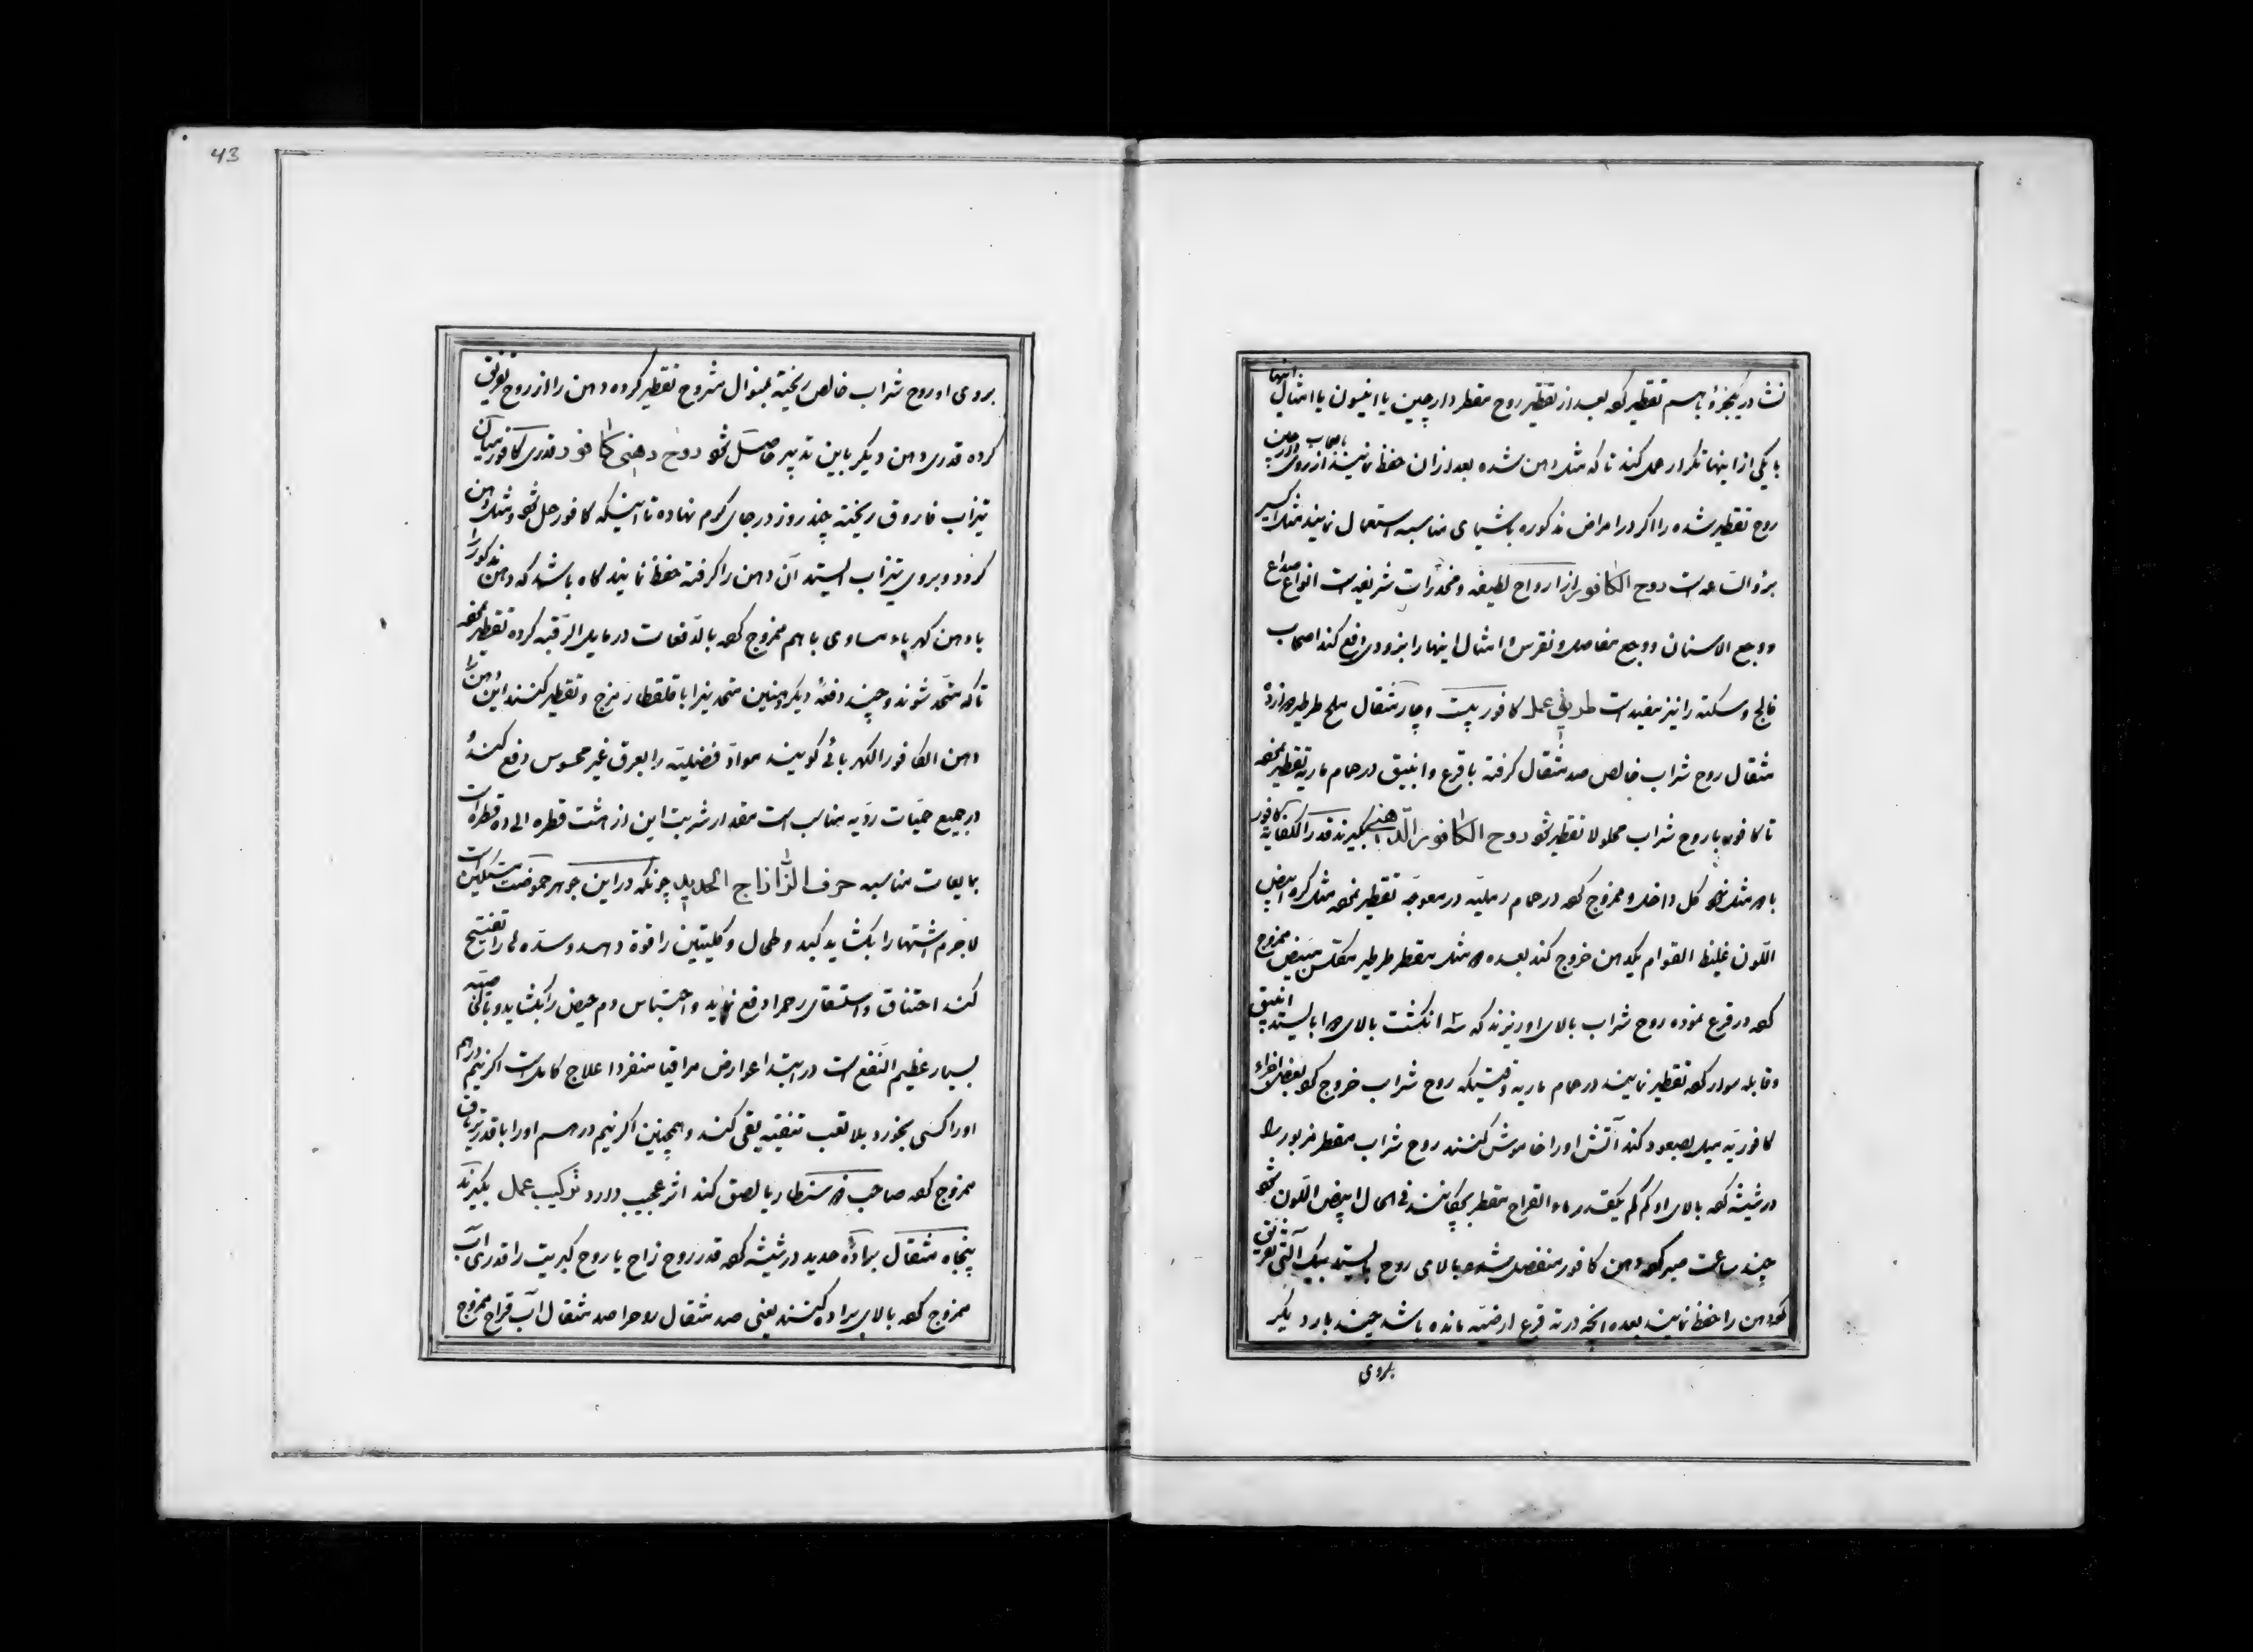 نشادر یکجزؤ باهم تقطیر کرده بعد از تقطیر روح مقطر دارچین یا انیسون یا امثال اینها
با یکی از اینها تکرار عمل کند تا که مثل دهن شده بعد ازان حفظ نمایند از روی
روح تقطیر شده را اکر در امراض مذکوره باشیای مناسبه استعمال نمایند مثل اکسیر
برؤ الساعه است روح الکافور از ارواح لطیفه و مخدرات شریفه است انواع صداع
ووجع الاسنان ووجع مفاصل ونقرس وامثال اینها را بزودی رفع کند اصحاب
فالج وسکته را نیز مفید است طریق عمل کافور بیست وچار مثقال ملح طرطیر
مثقال روح شراب خالص صد مثقال کرفته با قرع وانبیق در حمام ماریه تقطیر نموده
تا کافور با روح شراب محلولا تقطیر شود روح الکافور الدهنی بکیرند قدر الکفایه کافور
با مثل کل داخل وممزوج کرده در حمام رملیه در معوجه تقطیر نموده مثل کره ابیض
اللون غلیظ القوام یکدهن خروج کند بعده مثل مقطر طرطیر مکلس مبیض ممزوج
کرده در قرع نموده روح شراب بالای او ریزند که سه انکشت بالای بایستد انبیق
وقابله سوار کرده تقطیر نمایند در حمام ماریه وقتیکه روح شراب خروج کرده بعض اجزاء
کافوریه میل بصعود کند آتش اورا خاموش کنند روح شراب مقطر مزبور را
در شیشه کرده بالای او کم کم یکقدر ماء القراح مقطر بچکانند فی الحال ابیض اللون شود
چند ساعت صبر کرده دهن کافور منفصل شده بالای روح بایستد بیک آلتی تفریق
کرده دهن را حفظ نمایند بعده انچه در ته قرع ارضیه مانده باشد چند بار دیکر
بروی
بروی او روح شراب خالص ریخته بمنوال مشروح تقطیر کرده دهن را از روح تفریق
کرده قدری دهن دیکر باین تدبیر حاصل شود روح دهنی کافور قدری کافور میان
تیزاب فاروق ریخته چند روز در جای کرم نهاده تا اینکه کافور حل شود ومثل دهن
کردد وبروی تیزاب ایستد آن دهن را کرفته حفظ نمایند کاه باشد که دهن مذکور را
با دهن کهرباء مساوی باهم ممزوج کرده بالدفعات در مایل الرقبه کرده تقطیر نموده
تا که متحد شوند وچند دفعۀ دیکر همین متحد نیز با قلقطار مزج وتقطیر کنند این دهن را
دهن الکافور الکهربائی کویند مواد فضلیه را بعرق غیر محسوس دفع کننده
در جمیع حمیات ردیه مناسب است مقدار شربت این از هشت قطره الی ده قطره است
بمایعات مناسبه حرف الزا زاج الحدید چونکه در این جوهر حموضت
لاجرم اشتها را بکشاید کبد وطحال وکلیتین را قوة دهد وسده را تفتیح
کند اختناق واستسقای رحم را دفع نماید واحتباس دم حیض را بکشاید
بسیار عظیم النفع است در ابتدا عوارض مراقیا منفردا علاج کامل است اکر نیم درهم
اورا کسی بخورد بلا تعب تنقیه بقی کند وهمچنین اکر نیم درهم اورا با قدر تریاق
ممزوج کرده صاحب بالصق کند اثر عجیب دارد ترکیب عمل بکیرند
پنجاه مثقال برادۀ حدید در شیشه کرده قدر روح زاج یا روح کبریت را قدری آب
ممزوج کرده بالای براده کنند یعنی صد مثقال روح را صد مثقال آب قراح ممزوج
43